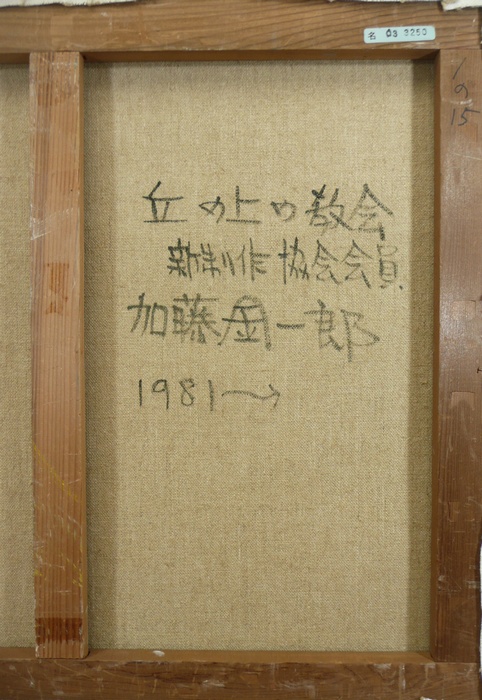 名 03 3250
1
9
15
丘の上の教会
新制作協会会員
加藤金一郎
1981→